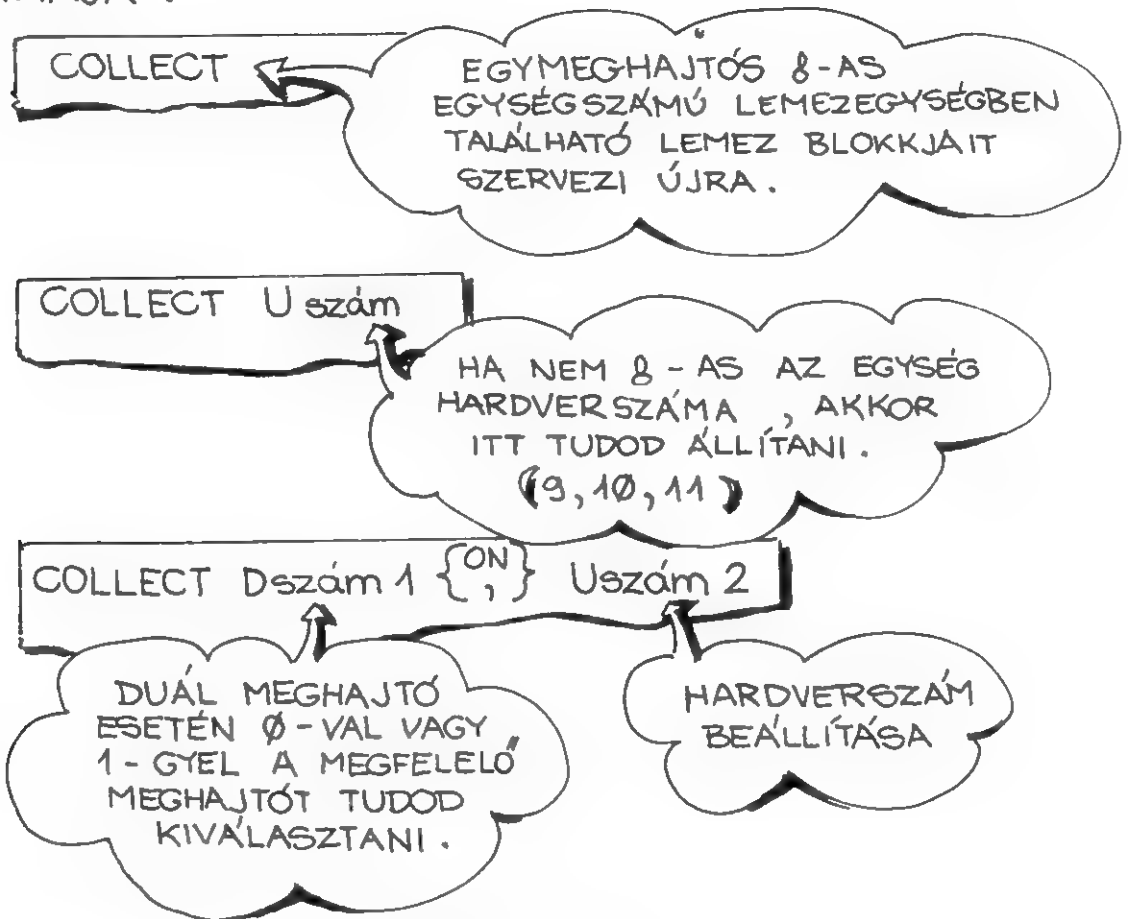 COLLECT
EGYMEGHAJTÓS 8-AS
EGYSÉGSZÁMÚ LEMEZEGYSÉGBEN
TALÁLHATÓ LEMEZ BLOKKJAIT
SZERVEZI ÚJRA.
COLLECT U szám
HA NEM 8-AS AZ EGYSÉG
HARDVERSZÁMA, AKKOR
ITT TUDOD ÁLLÍTANI.
(9, 10, 11)
COLLECT Dszám 1 {ON ,} Uszám 2
DUÁL MEGHAJTÓ
ESETÉN Ø-VAL VAGY
1-GYEL A MEGFELELŐ
MEGHAJTÓT TUDOD
KIVÁLASZTANI.
HARDVERSZÁM
BEÁLLÍTÁSA